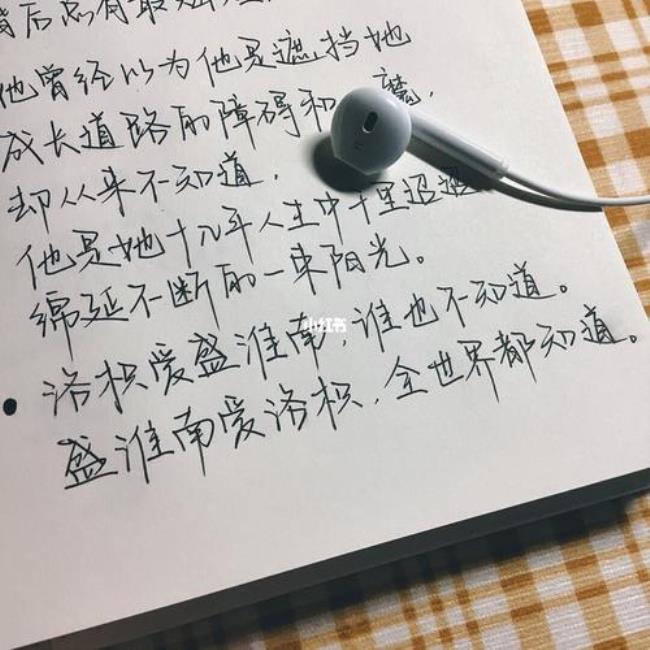 背后总有最
他曾经以为他是遮挡她
成长道路的障碍和魔,
却从来不知道,
他是她十几年人生中千里迢迢
绵延不断的一束阳光。
小红书
洛枳爱盛淮南,谁也不知道。
盛淮南爱洛枳,全世界都知道。